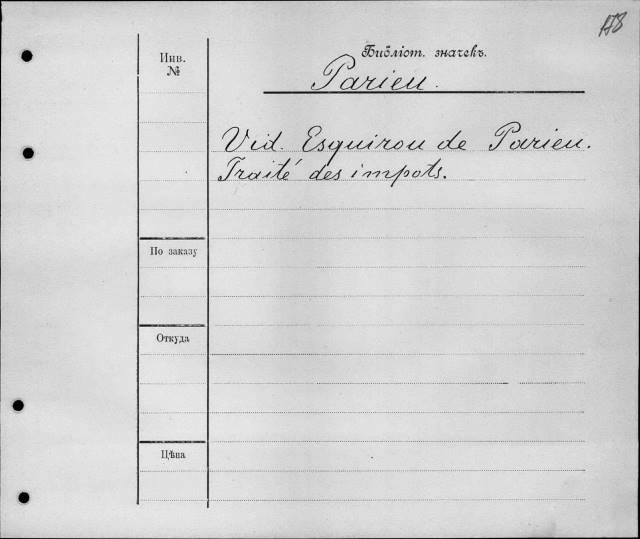 Библіот. значекъ.
Инв.
№
Parieu.
Vid. Esquirou de Parieu.
Traité des impots.
По заказу
Откуда
Цѣна